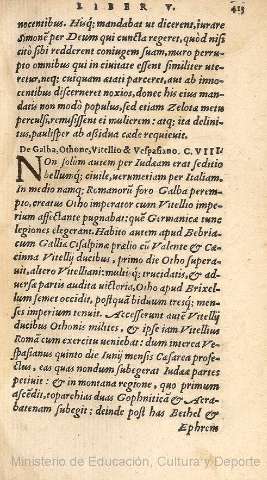 LIBER V. 413
nocentibus. Huq; mandabat ut dicerent, iurare
Simonē per Deum qui cuncta regeret, quòd nisi
citò sibi redderent coniugem suam, muro perru-
pto omnibus qui in ciuitate essent similiter ute-
retur, neq; cuiquam ætati parceret, aut ab inno-
centibus discerneret noxios, donec his eius manda
tis non modò populus, sed etiam Zelotæ metu
perculsi, remisissent ei mulierem: atq; ita delini-
tus, paulisper ab aßidua cæde requieuit.
De Galba, Othone, Vitellio & Vespasiano. C. VIII.
NOn solùm autem per Iudæam erat seditio
bellumq; ciuile, verumetiam per Italiam.
In medio nanq; Romanorū foro Galba perem-
pto, creatus Otho imperator cum Vitellio impe-
rium affectante pugnabat: quē Germanicæ tunc
legiones elegerant. Habito autem apud Bebria-
cum Galliæ Cisalpinæ prælio cū Valente & Cæ-
cinna Vitellij ducibus, primo die Otho supera-
uit, altero Vitelliani: multiq; trucidatis, & ad-
uersa partis audita uictoria, Otho apud Brixel-
lum semet occidit, postquā biduum tresq; men-
ses imperium tenuit. Accesserunt autē Vitellij
ducibus Othonis milites, & ipse iam Vitellius
Romā cum exercitu ueniebat: dum interea Ve-
spasianus quinto die Iunij mensis Cæsarea profe-
ctus, eas quas nondum subegerat Iudææ partes
petiuit: & in montana regione, quo primum
ascēdit, toparchias duas Gophniticā & Acra-
batenam subegit; deinde post has Bethel &
Ephrem
Ministerio de Educación, Cultura y Deporte